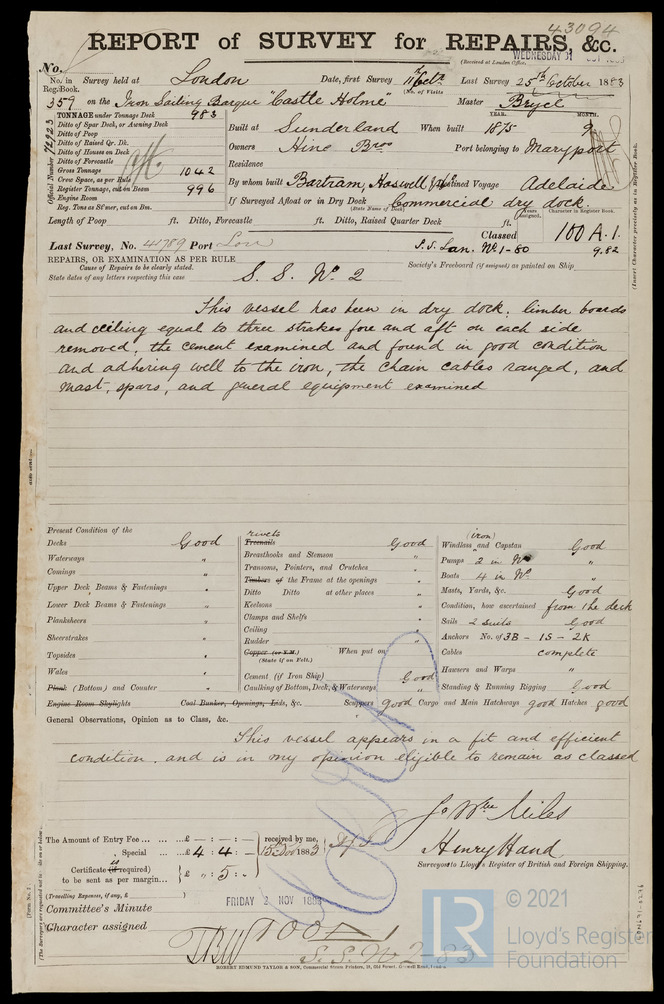 43094
REPORT of SURVEY for REPAIRS, &c.
(Received at London Office,
WEDNESDAY 31 OCT 1883
No.
No. in Reg. Book. Survey held at London Date, first Survey 11th Octr Last Survey 25th October 1883
(No. of Visits
359 on the Iron Sailing Barque "Castle Holme" Master Bryce
Official Number 72923
TONNAGE under Tonnage Deck 983
Ditto of Spar Deck, or Awning Deck
Ditto of Poop
Ditto of Raised Qr. Dk.
Ditto of Houses on Deck
Ditto of Forecastle
Gross Tonnage 1042
Crew Space, as per Rule
Register Tonnage, cut on Beam 996
Engine Room
Reg. Tons as St'mer, cut on Bm.
Built at Sunderland When built YEAR. 1875 MONTH. 9
Owners Hine Bros Port belonging to Maryport
Residence
By whom built Bartram, Haswell & Co Destined Voyage Adelaide
If Surveyed Afloat or in Dry Dock Commercial dry dock.
(State Name of Dock)
Length of Poop ft. Ditto, Forecastle ft. Ditto, Raised Quarter Deck ft.
Years Assigned. Character in Register Book.
Classed 100 A.1.
9.82
S.S. Lon. No.1-80
Last Survey, No. 41789 Port Lon
REPAIRS, OR EXAMINATION AS PER RULE S. S. No. 2
Cause of Repairs to be clearly stated.
State dates of any letters respecting this case
Society's Freeboard (if assigned) as painted on Ship
This vessel has been in dry dock; limber boards
and ceiling equal to three strakes fore and aft on each side
removed, the cement examined and found in good condition
and adhering well to the iron, the chain cables ranged, and
mast, spars, and general equipment examined
Present Condition of the
Decks Good
Waterways "
Comings "
Upper Deck Beams & Fastenings "
Lower Deck Beams & Fastenings "
Planksheers "
Sheerstrakes "
Topsides "
Wales "
Plank (Bottom) and Counter "
Engine Room Skylights Coal Bunker, Openings, Lids, &c.
rivets
Treenails Good
Breasthooks and Stemson "
Transoms, Pointers, and Crutches "
Timbers of the Frame at the openings "
Ditto Ditto at other places "
Keelsons "
Clamps and Shelfs "
Ceiling "
Rudder "
Copper (or Y.M.) When put on
(State if on Felt.)
Cement (if Iron Ship) Good
Caulking of Bottom, Deck, & Waterways "
Scuppers good Cargo and Main Hatchways good Hatches good
(iron)
Windlass and Capstan Good
Pumps 2 in No. "
Boats 4 in No. "
Masts, Yards, &c. Good
Condition, how ascertained from the deck
Sails 2 suits Good
Anchors No. of 3B - 1S - 2K
Cables complete
Hawsers and Warps "
Standing & Running Rigging Good
General Observations, Opinion as to Class, &c.
This vessel appears in a fit and efficient
condition and is in my opinion eligible to remain as classed
Jo Wm Miles
Henry Hand
Surveyor to Lloyd's Register of British and Foreign Shipping.
The Amount of Entry Fee ... ... £ - : - : -
" Special ... £ 4 : 4 : -
Certificate (if required) to be sent as per margin... £ " : 5 : -
received by me,
1883
(Travelling Expenses, if any, £ )
Committee's Minute
FRIDAY 2 NOV 1883
Character assigned
100A1
S.S. No 2-83
ROBERT EDMUND TAYLOR & SON, Commercial Steam Printers, 19, Old Street, Goswell Road, London
© 2021
Lloyd's Register
Foundation